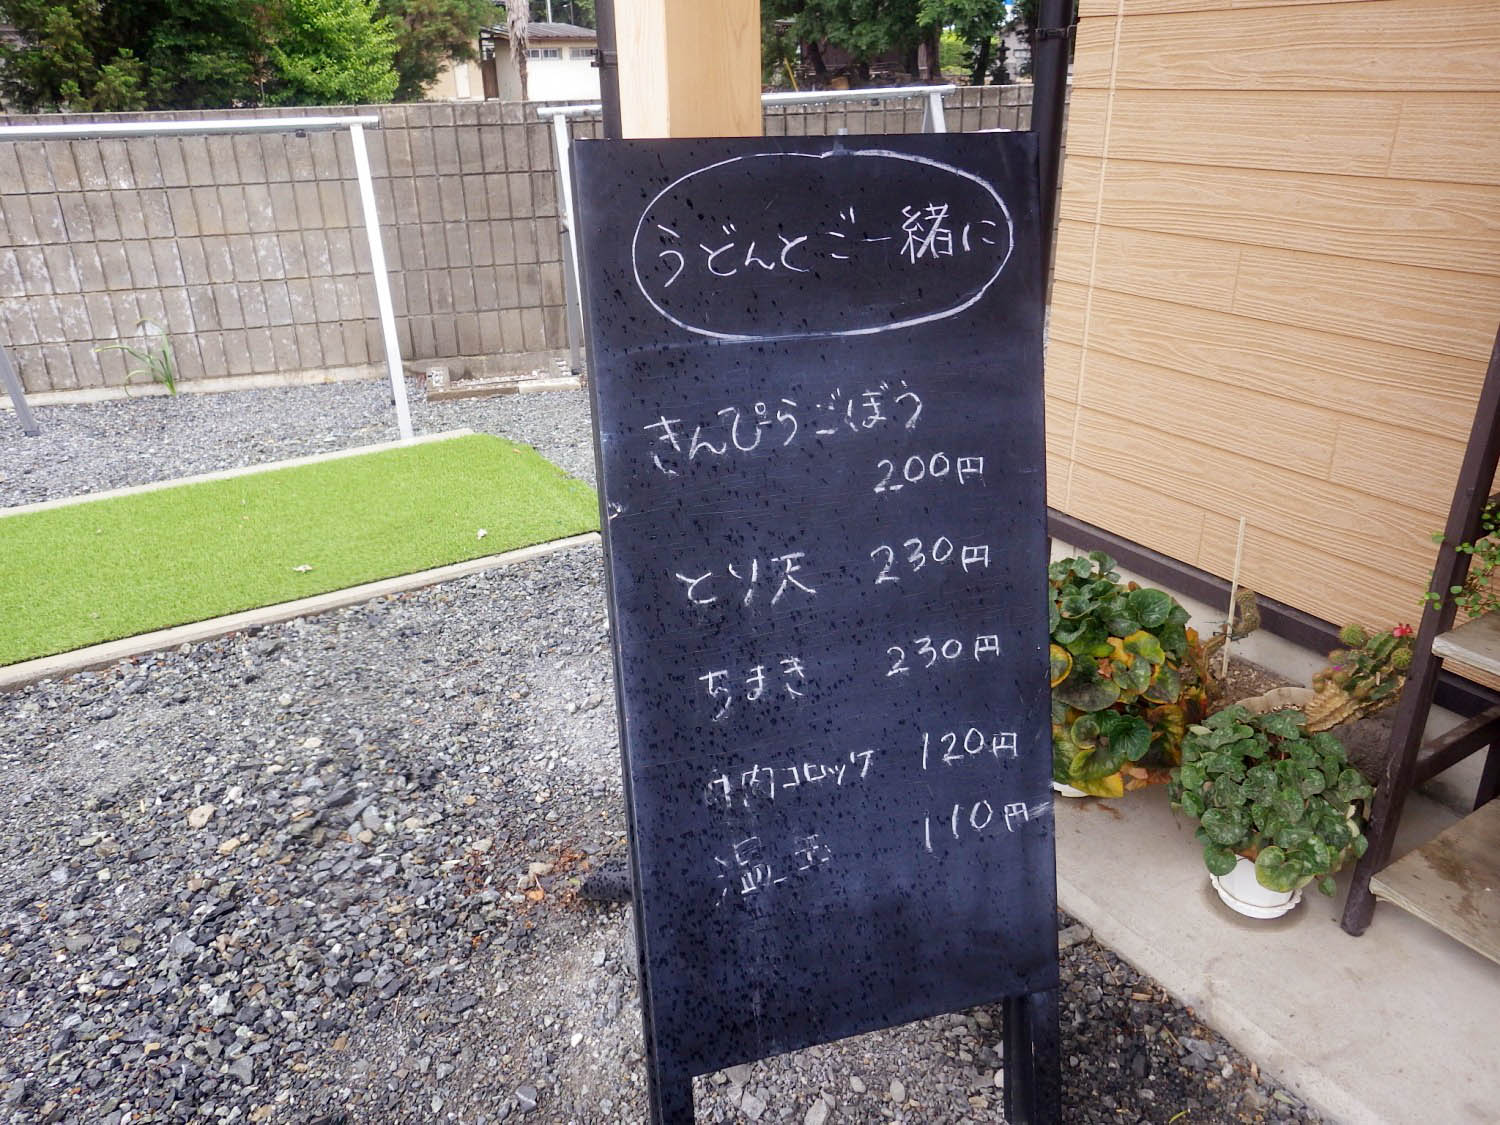 うどんとご一緒に
きんぴらごぼう
200円
とり天 230円
ちまき 230円
牛肉コロッケ 120円
温玉 110円